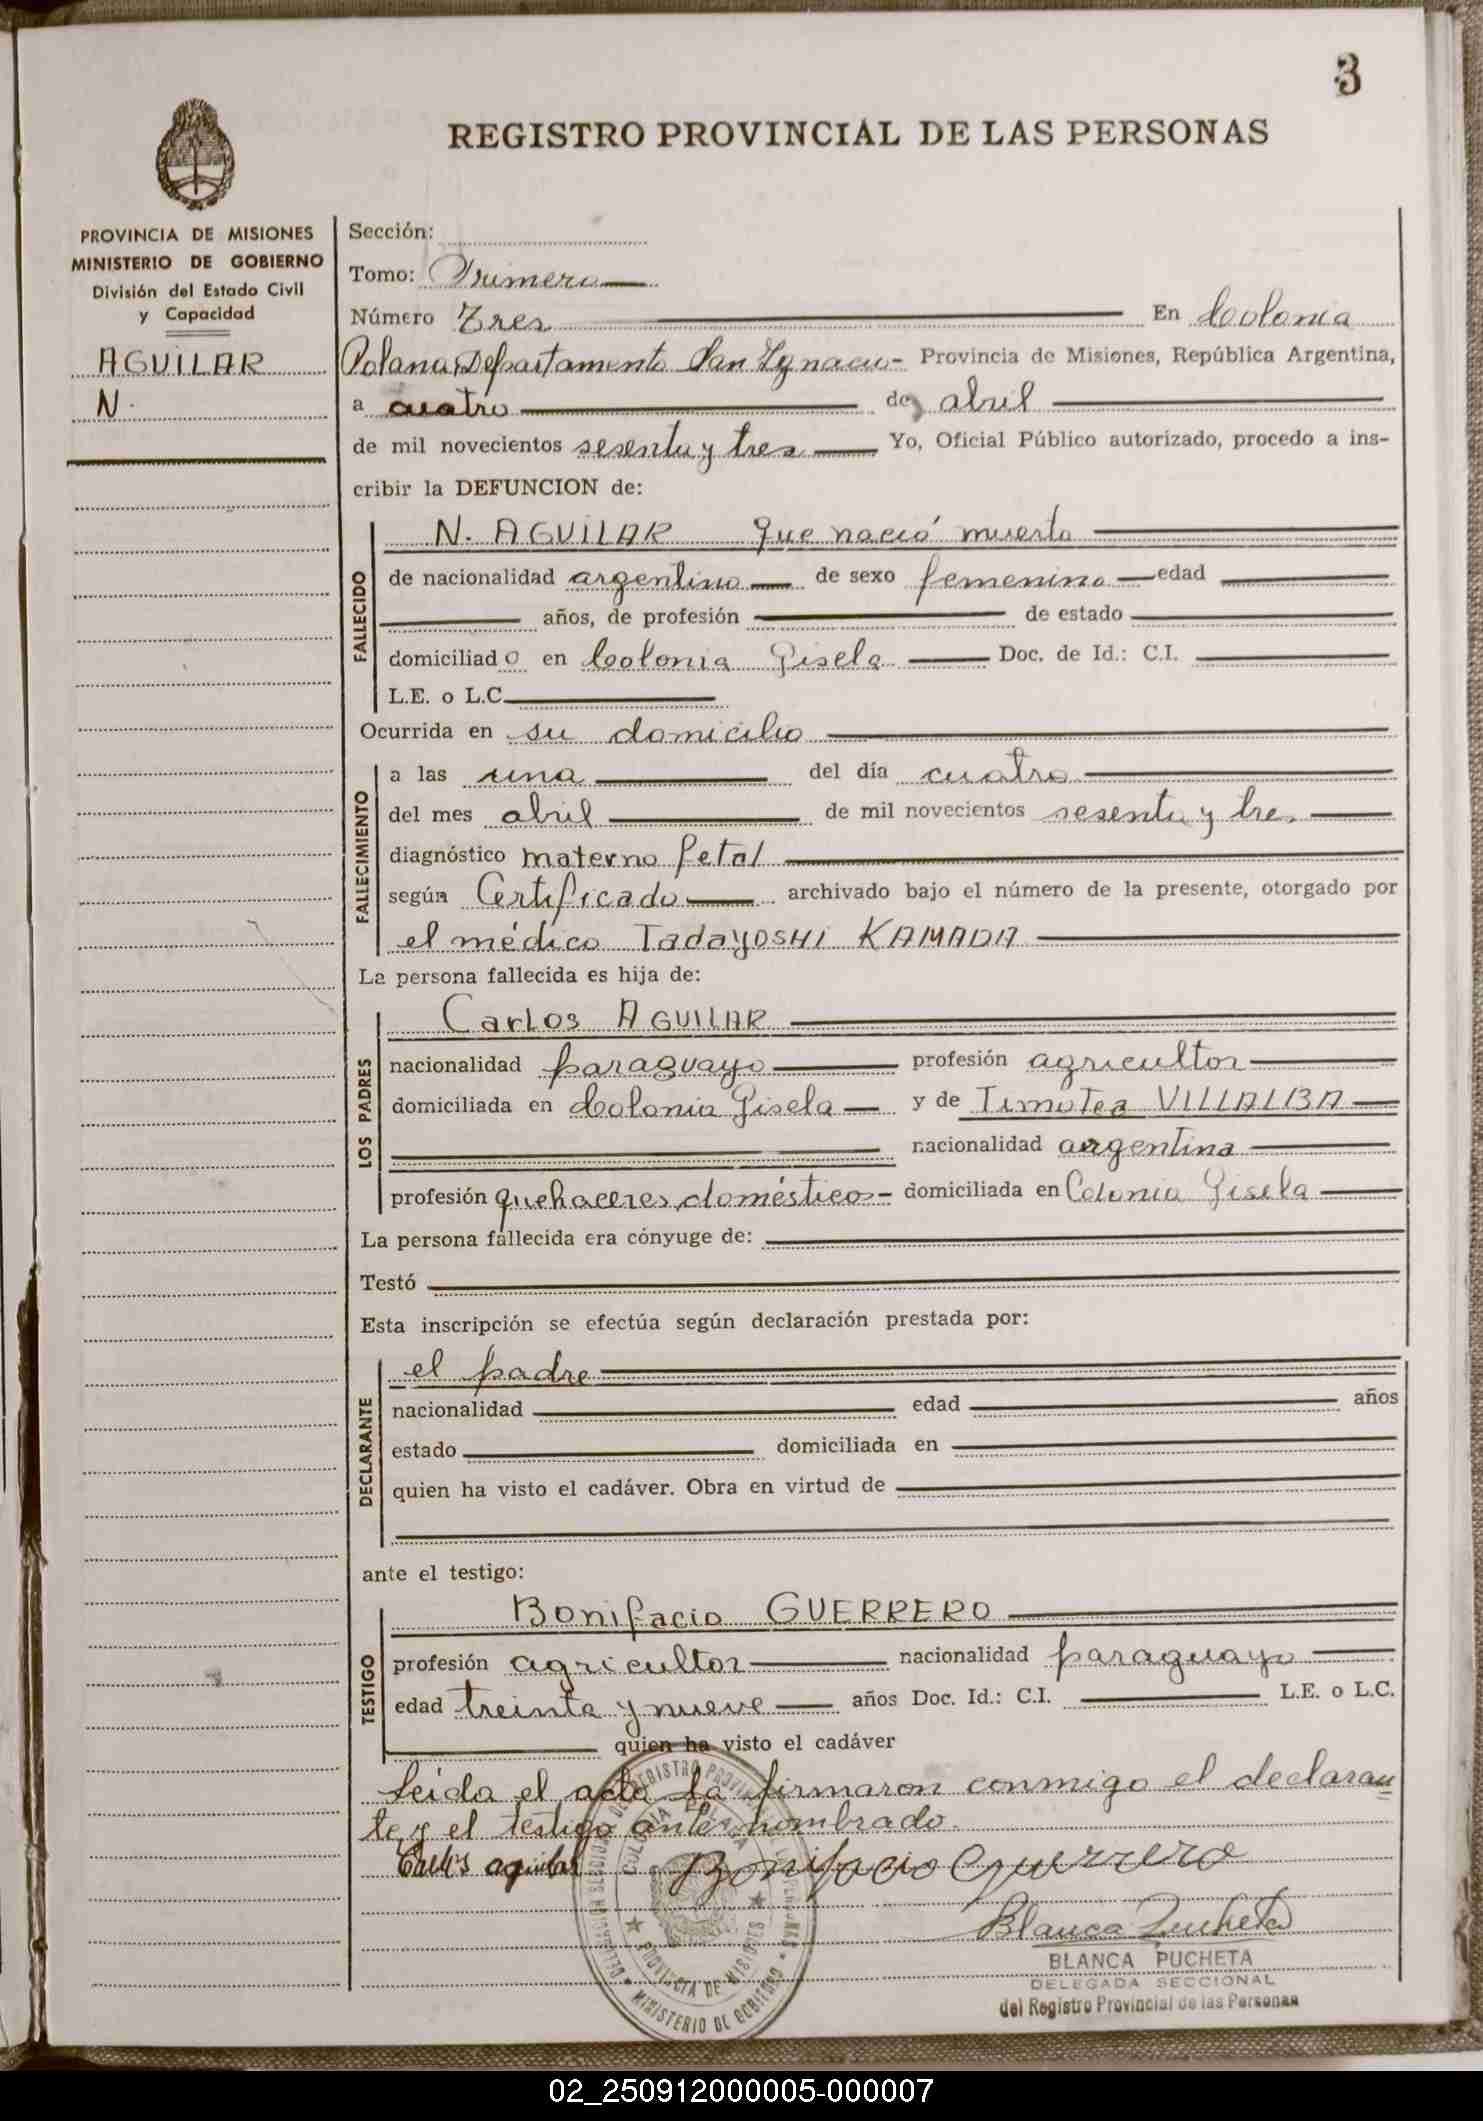 3
REGISTRO PROVINCIAL DE LAS PERSONAS
PROVINCIA DE MISIONES
MINISTERIO DE GOBIERNO
División del Estado Civil
y Capacidad
AGUILAR
N.
Sección:
Tomo: Primero
Número Tres En Colonia
Polana Departamento San Ignacio - Provincia de Misiones, República Argentina,
a cuatro de abril
de mil novecientos sesenta y tres Yo, Oficial Público autorizado, procedo a ins-
cribir la DEFUNCION de:
FALLECIDO
N. AGUILAR que nació muerto
de nacionalidad argentina de sexo femenino edad
años, de profesión de estado
domiciliado en Colonia Gisela Doc. de Id.: C.I.
L.E. o L.C.
Ocurrida en su domicilio
FALLECIMIENTO
a las una del día cuatro
del mes abril de mil novecientos sesenta y tres
diagnóstico materno fetal
según Certificado archivado bajo el número de la presente, otorgado por
el médico Tadayoshi KAMADA
La persona fallecida es hija de:
LOS PADRES
Carlos AGUILAR
nacionalidad paraguayo profesión agricultor
domiciliada en Colonia Gisela y de Timotea VILLALBA
nacionalidad argentina
profesión quehaceres domésticos - domiciliada en Colonia Gisela
La persona fallecida era cónyuge de:
Testó
Esta inscripción se efectúa según declaración prestada por:
DECLARANTE
el padre
nacionalidad edad años
estado domiciliada en
quien ha visto el cadáver. Obra en virtud de
ante el testigo:
TESTIGO
Bonifacio GUERRERO
profesión agricultor nacionalidad paraguayo
edad treinta y nueve años Doc. Id.: C.I. L.E. o L.C.
quien ha visto el cadáver
Leida el acta la firmaron conmigo el declaran
te y el testigo antes nombrado.
Carlos aguilar Bonifacio Guerrero
Blanca Pucheta
BLANCA PUCHETA
DELEGADA SECCIONAL
del Registro Provincial de las Personas
COLONIA POLANA
PROVINCIA DE MISIONES
MINISTERIO DE GOBIERNO
02_250912000005-000007